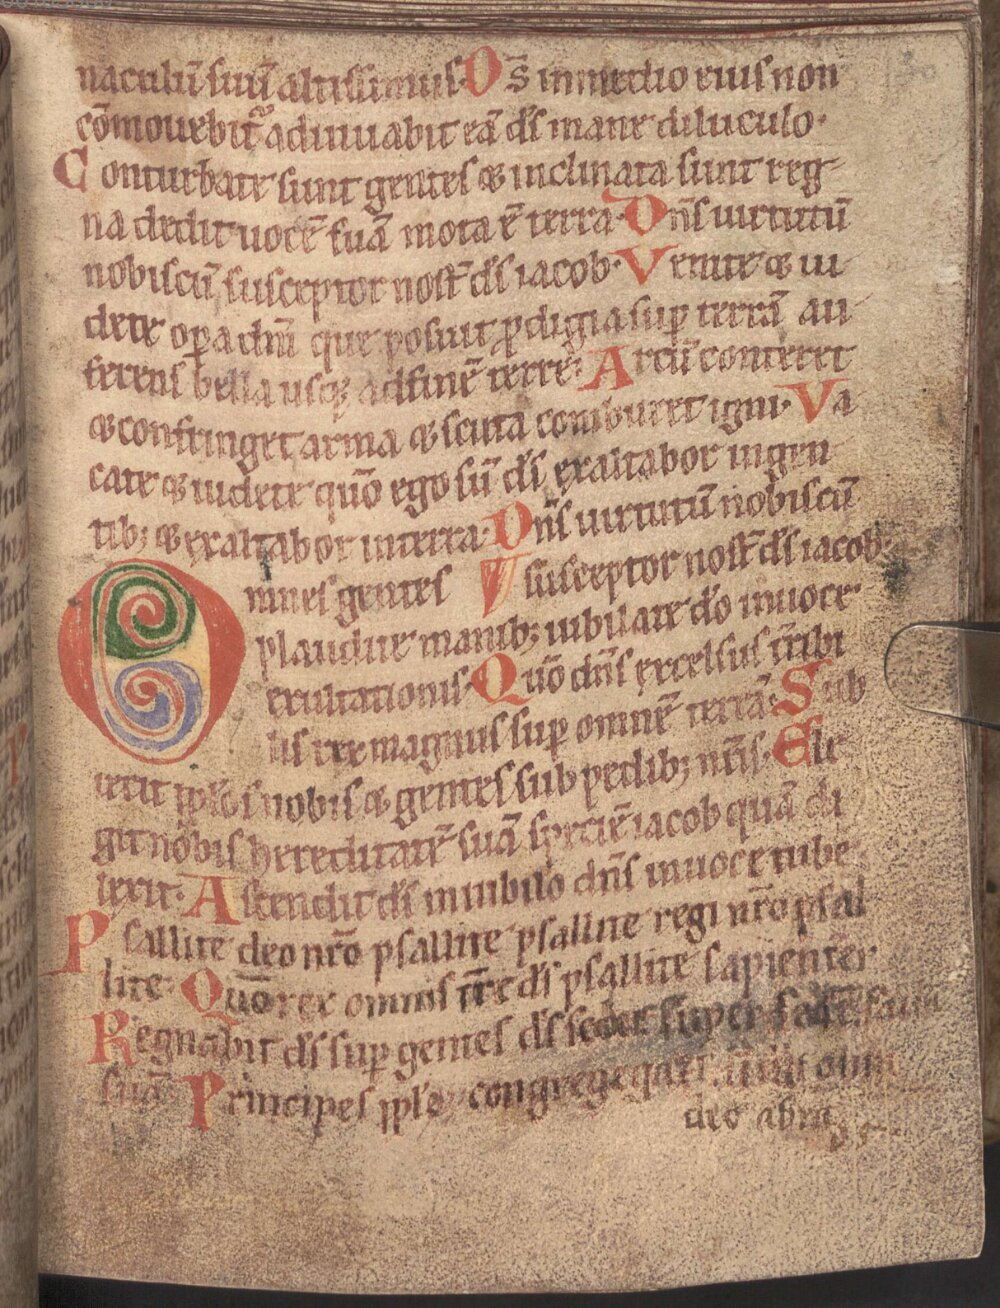 naculū suū altissimus. Ds̄ in medio eius non
cōmouebit᷑ adiuuabit eā ds̄ mane diluculo.
Conturbate sunt gentes & inclinata sunt reg
na dedit uocē suā mota ē terra. Dn̄s uirtutū
nobiscū susceptor nosт̄ ds̄ iacob. Venite & ui
dete oꝑa dn̄i que posuit ꝓdigia suꝑ terrā au
ferens bella usq; ad finē terrę. Arcū conteret
& confringet arma & scuta comburet igni. Va
cate & uidete quō ego sū ds̄ exaltabor in gen
tib; & exaltabor in terra. Dn̄s uirtutū nobiscū
susceptor nosт̄ ds̄ iacob.
Omnes gentes
plaudite manib; iubilate dō in uoce
exultationis. Quō dn̄s excelsus tr̄ibi
lis rex magnus suꝑ omnē terrā. Sub
iecit pplōs nobis & gentes sub pedib; nr̄is. Ele
git nobis hereditatē suā speciē iacob quā di
lexit. Ascendit ds̄ in iubilo dn̄s in uoce tube
Psallite deo nr̄o psallite psallite regi nr̄o psal
lite. Quō rex omnis tr̄e ds̄ psallite sapienter
Regnabit ds̄ suꝑ gentes ds̄ sedet super
suā. Principes pplō congregegati
deo abra